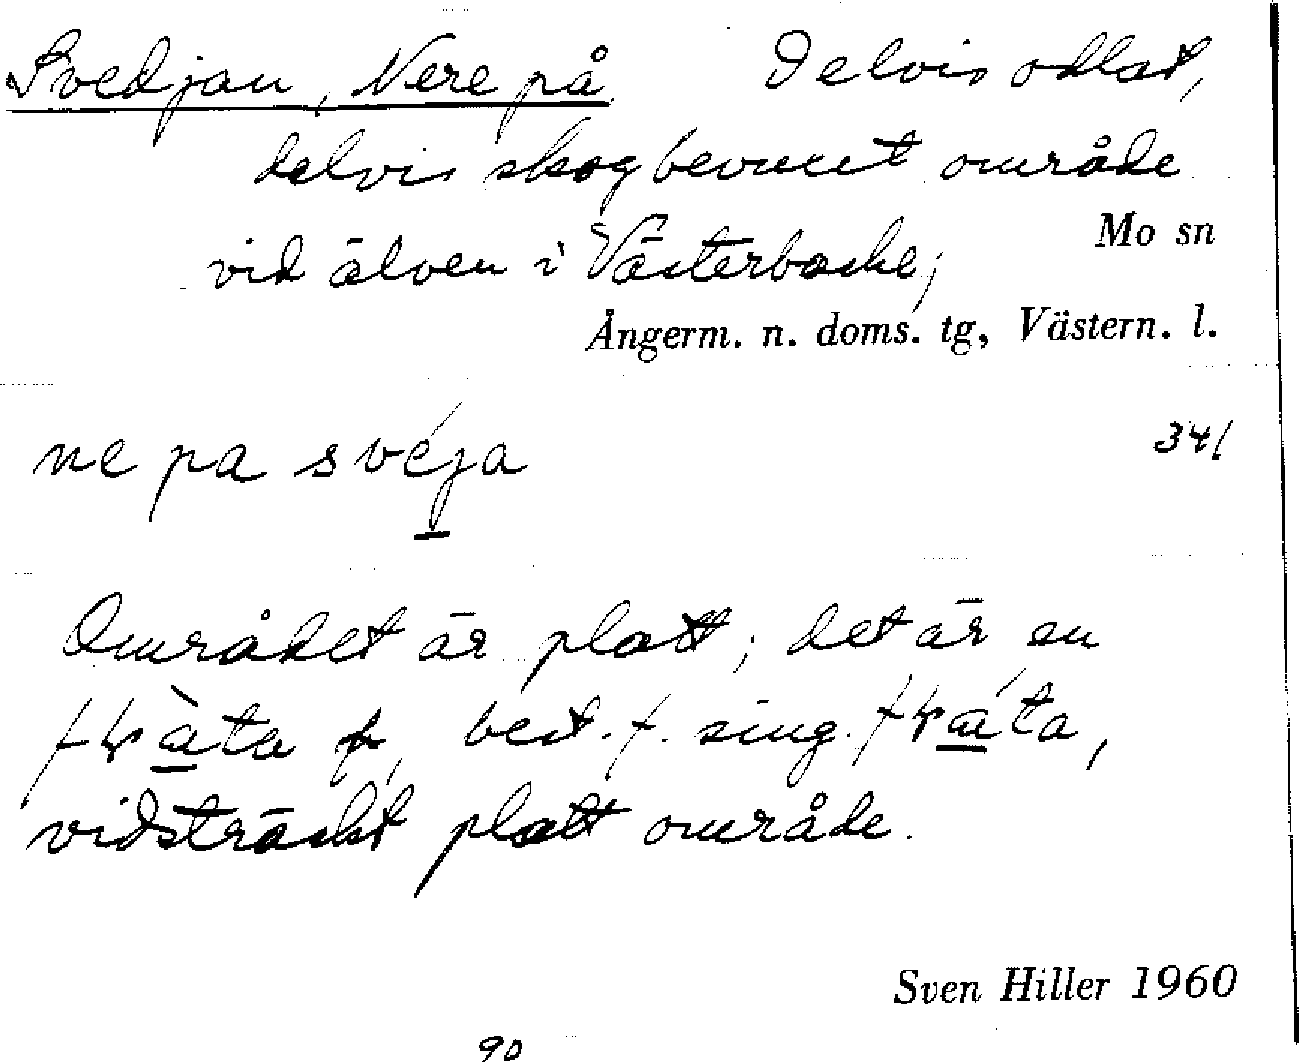 Svedjan, Nere på Delvis odlat,
delvis skogbevuxet område
vid älven i Västerbacke;
Mo sn
Ångerm. n. doms. tg, Västern. l.
ne pa svéja
341
Området är platt; det är en
f, best. f. sing.
vidsträckt platt område.
Sven Hiller 1960
90